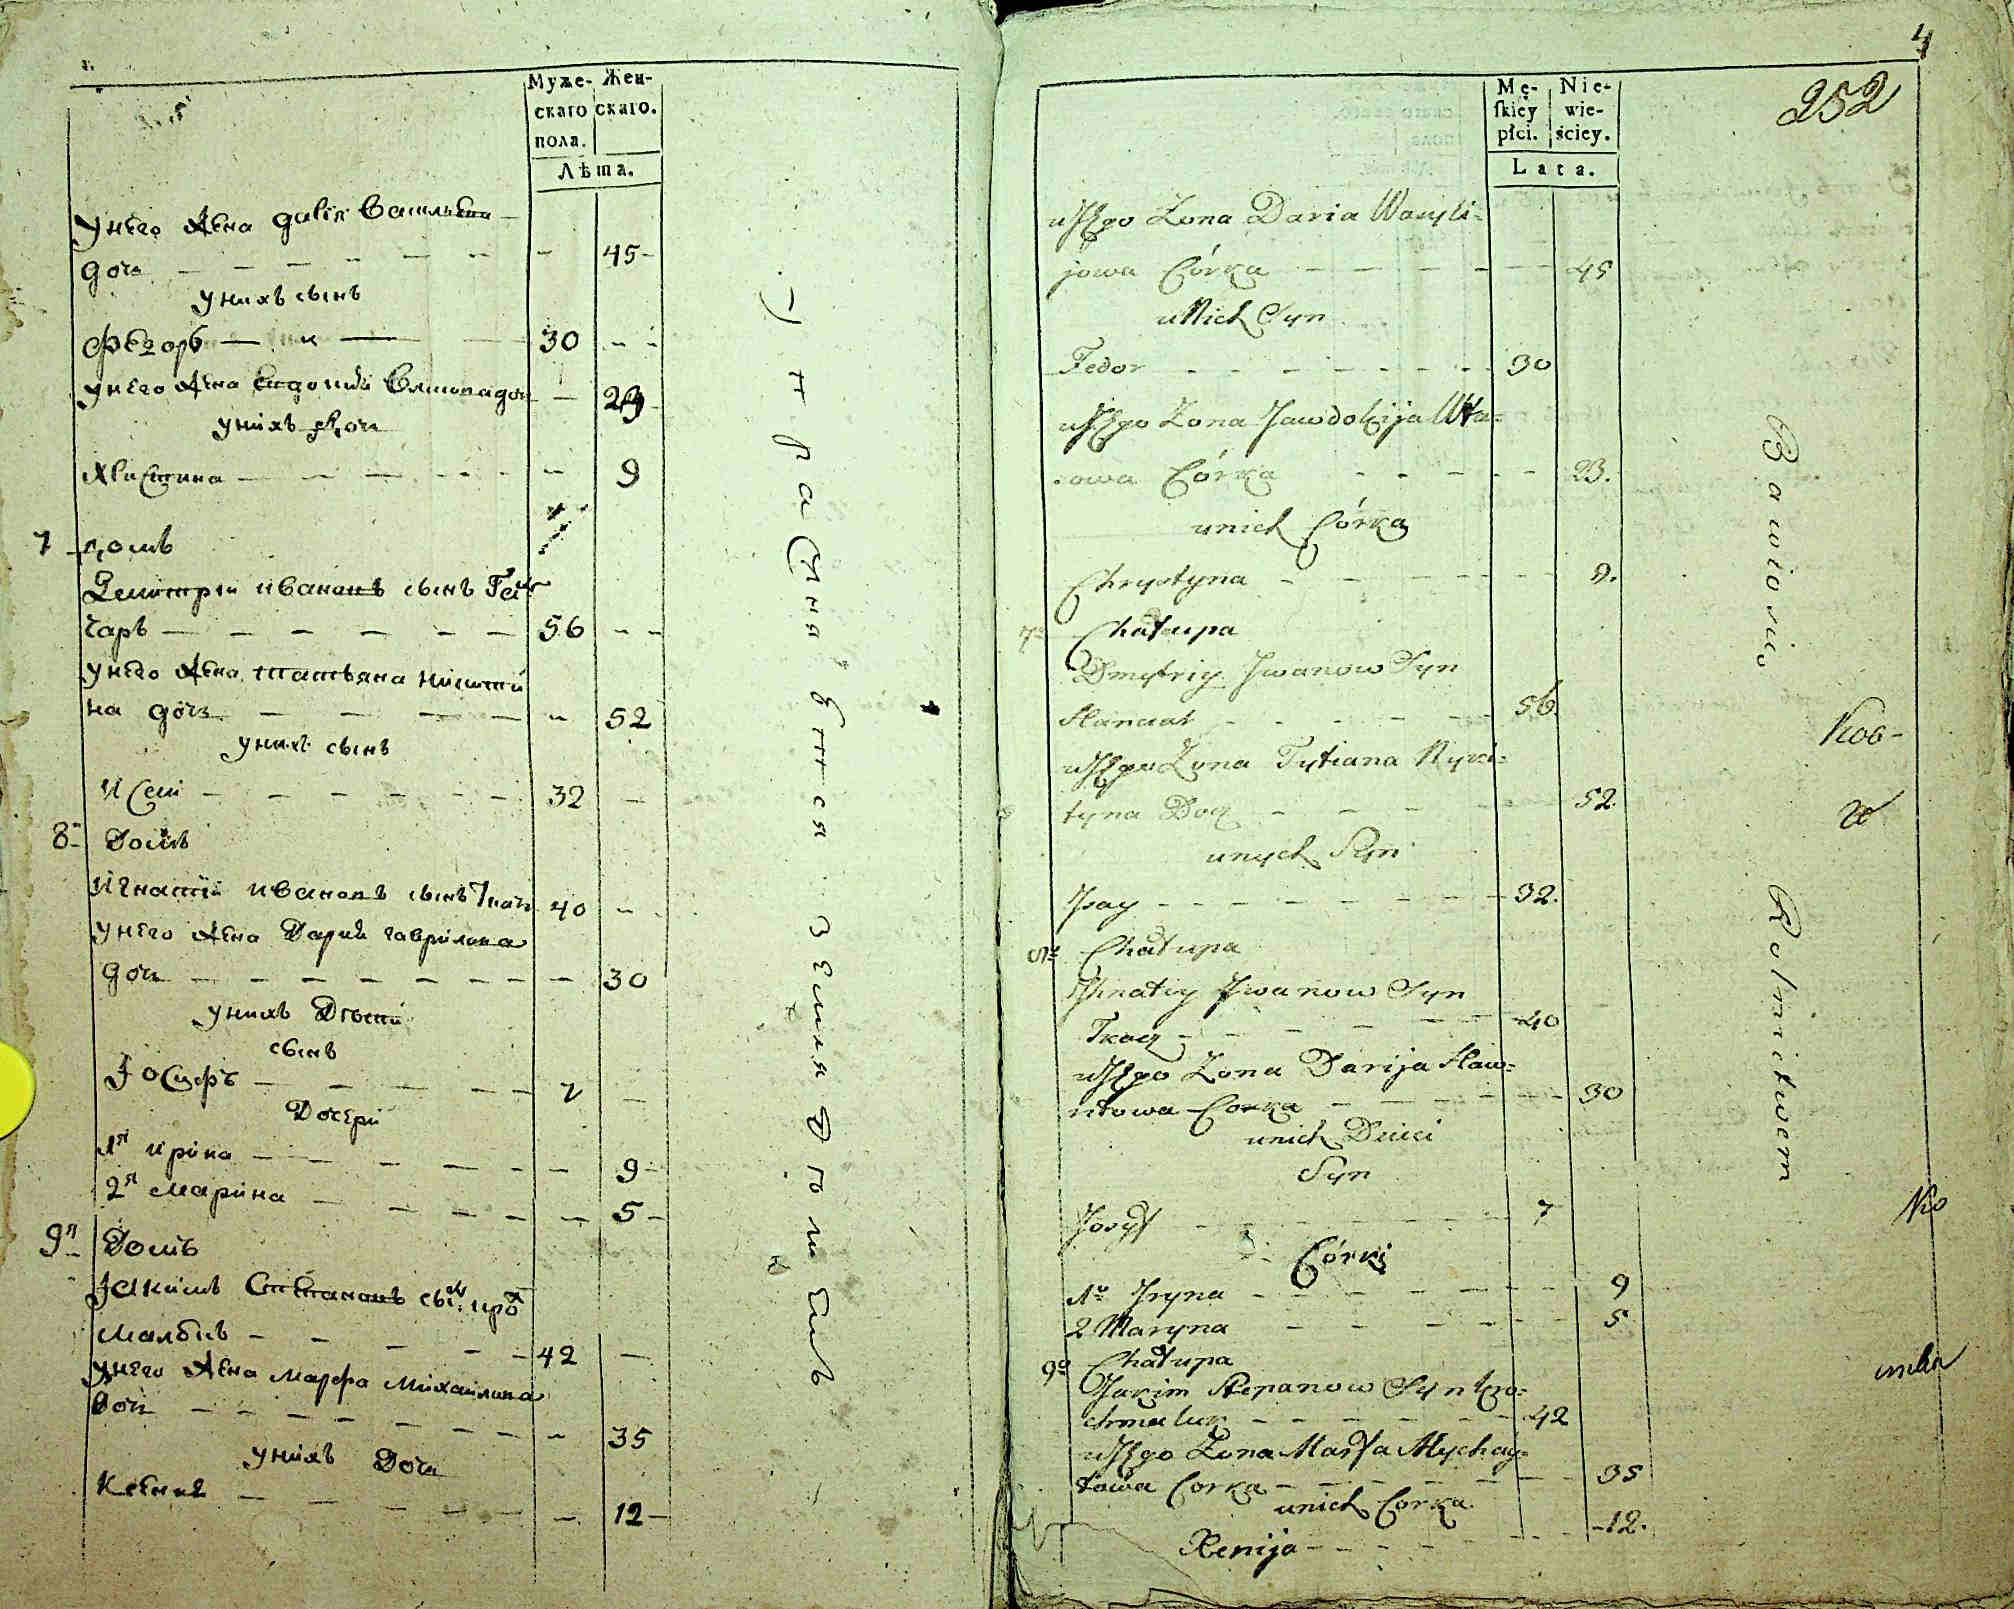 Муже- Жен-
скаго скаго.
пола.
Лѣта.
унего жена дарія василева
дочь - - - - - - - 45 -
унихъ сынъ
Федоръ - - - 30 - -
унего жена Евдокия Власова доч - 23
унихъ доч
Христина - - - - - - 9
7 домъ
Дмитрій ивановъ сынъ Ган
чаръ - - - - - - 56 - -
унего жена татьяна никити
на дочь - - - - - 52
унихъ сынъ
Исай - - - - - - 32 -
8 Домъ
Игнатій ивановъ сынъ Ткачъ 40 -
унего жена Дария гаврилова
дочь - - - - - - - - 30
унихъ Дѣти
сынъ
Іосифъ - - - - - 7 -
Дочери
1я ирина - - - - - - 9 -
2я марина - - - - - - 5 -
9 Домъ
Іакимъ Степановъ сынъ крох
малюкъ - - - - - 42 -
унего жена марфа михаилова
дочь - - - - - - - 35
унихъ Дочь
Ксения - - - - - - 12 -
упрастняются земледѣлиемъ
4
252
Mę- Nie-
skiéy wie-
płci. ściey.
Lata.
u Jego Zona Daria Wasyli-
jowa Córka - - - - - 45
u Nich Syn
Fedor - - - - - - - 30
u Jego Zona Jawdokija Wła-
sowa Córka - - - - - 23.
unich Córka
Chrystyna - - - - - - 9.
7o Chałupa
Dmytriy Jwanow Syn
Hanczar - - - - - - 56.
u Jego Zona Tytiana Nyki-
tyna Docz - - - - 52.
unych Syn
Jsay - - - - - - - - 32.
8o Chałupa
Jhnatiy Jwanow Syn
Tkacz - - - - - - 40
u Jego Zona Darija Haw-
ryłowa Corka - - - - - - 30
unich Dzieci
Syn
Josyf - - - - - - - 7
Córki
1o Jryna - - - - - - 9
2 Maryna - - - - - - 5
9o Chałupa
Jakim Stepanow Syn kro-
chmaluk - - - - - - 42
u Jego Zona Marfa Mychay-
łowa Corka - - - - - - 35
unich Corka
Xenija - - - - - - 12.
Bawiąsię
Rolnictwem